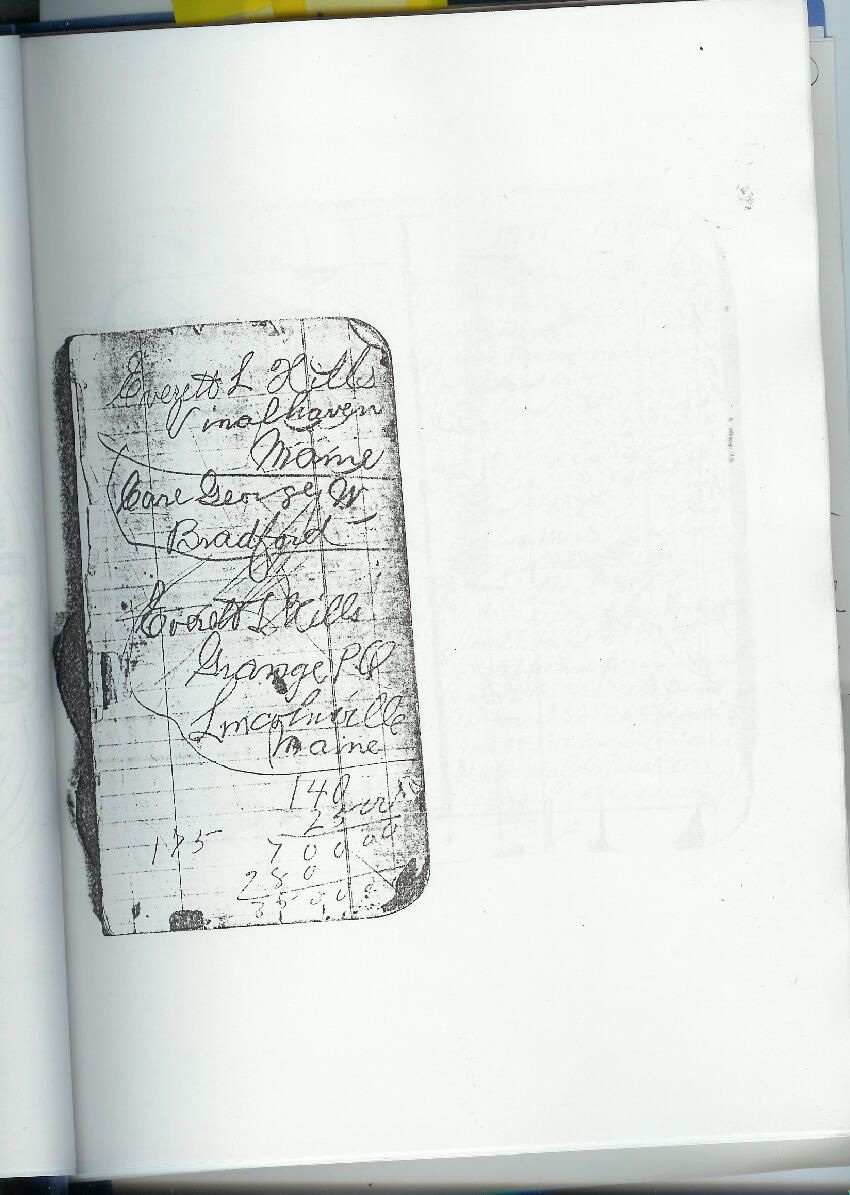 Everett L Hills
Vinalhaven
Maine
Care George W
Bradford
Everett L Hills
Grange P.O
Lincolnville
Maine
140
25
175 700
280
3500